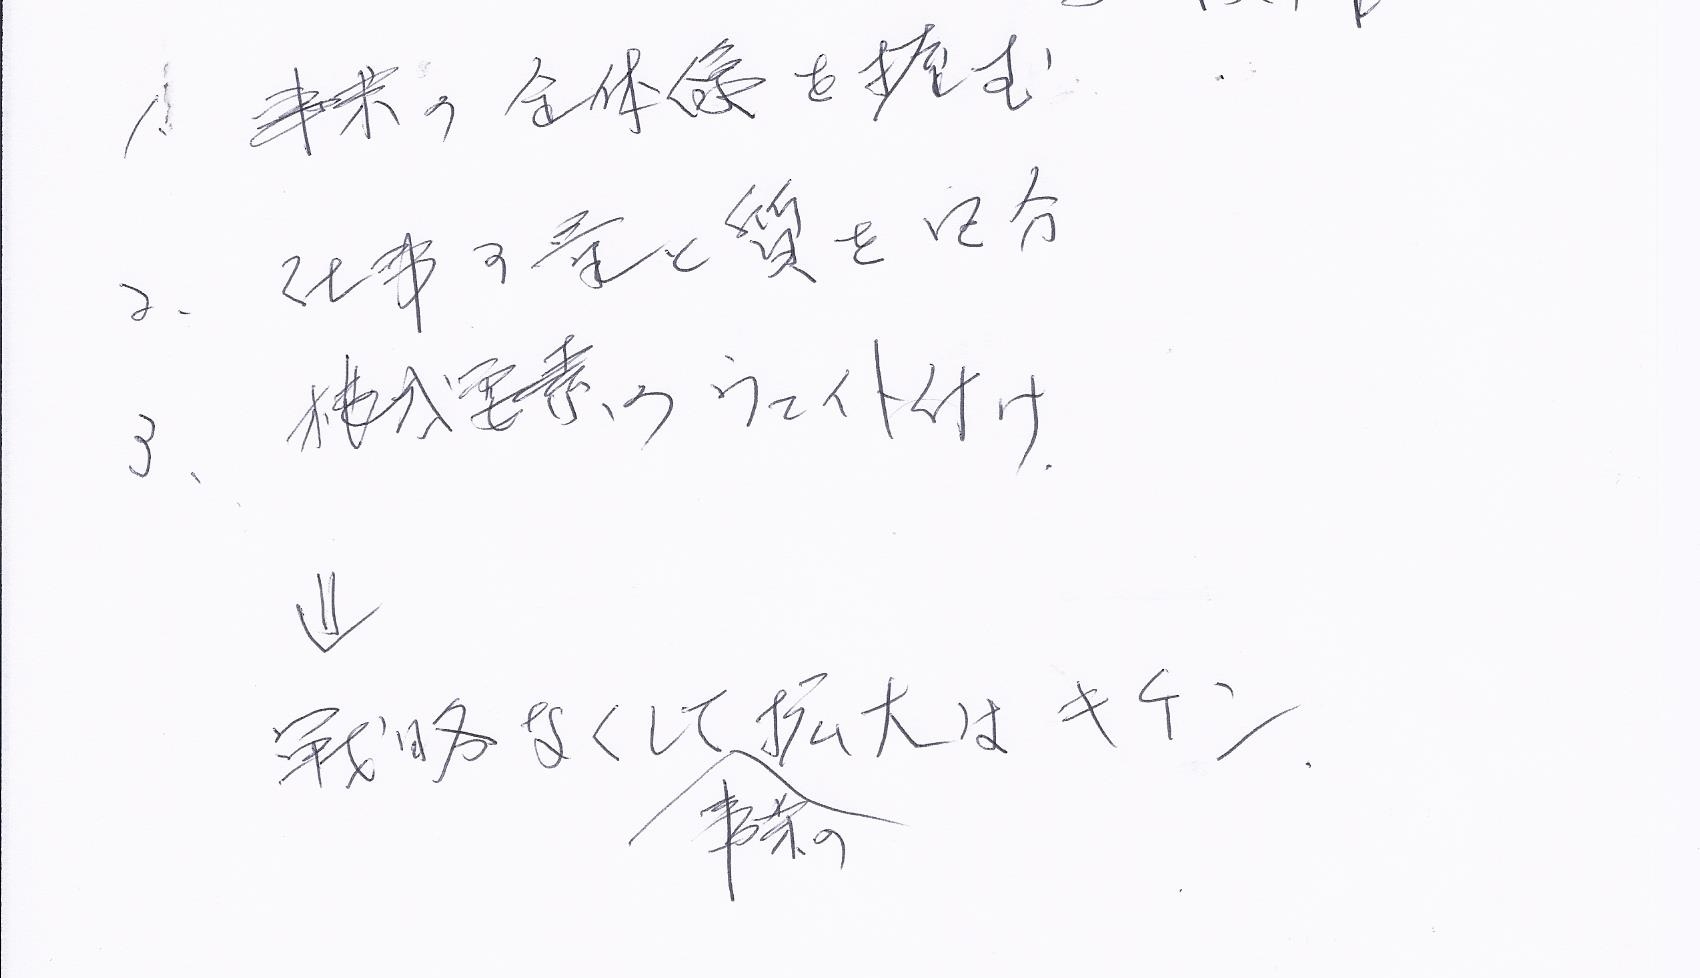 1. 事業の全体像を掴む
2. 仕事の量と質を区分
3. 構成要素のウエイト付け.
⇓
戦略なくして拡大はキケン.
事業の